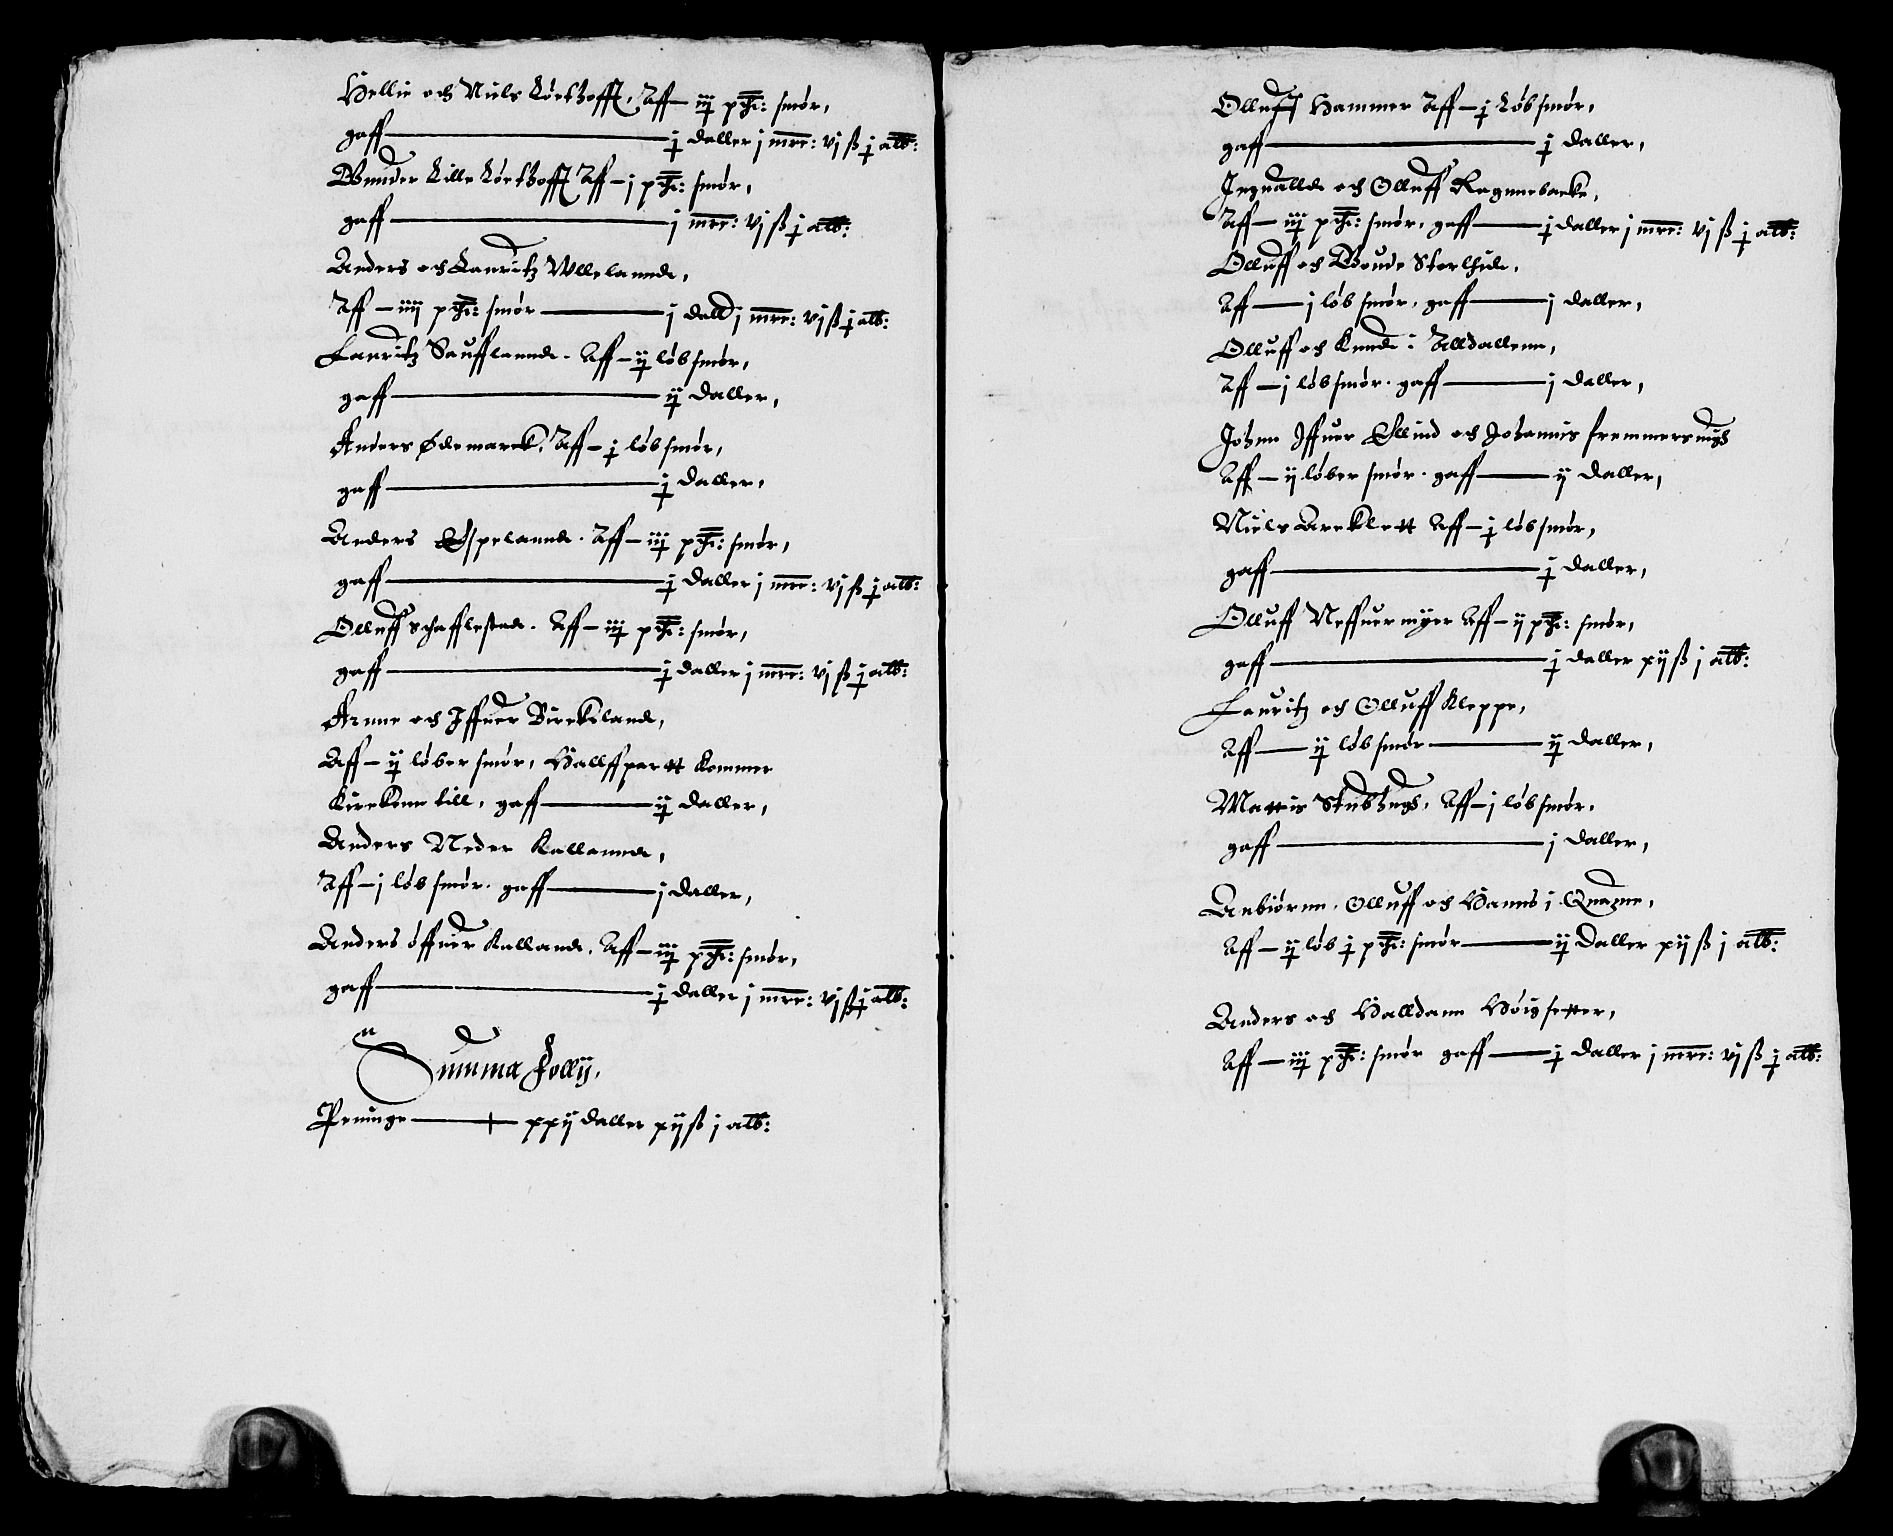 Hellie och Niels Lörthofft, Aff – iij pd: smör,
gaff — j daller j mrc: vj ß j alb:
Gunder Lille Lörthofft Aff – j pd: smör,
gaff — j mrc: vj ß j alb:
Anders och Lauritz Vllelannde,
Aff – iiij pd: smör — j dall j mrc: vj ß j alb:
Lauritz Saufflannde. Aff – ij löb smör,
gaff — ij daller,
Anders Ödemarck, Aff – j löb smör,
gaff — j daller,
Anders Espelannde. Aff – iij pd: smör,
gaff — j daller j mrc: vj ß j alb:
Olluff schafflestad. Aff – iij pd: smör,
gaff — j daller j mrc: vj ß j alb:
Arnne och Iffuer Birkeland,
Aff – ij löber smör, Hallffpartt kommer
Kirckenn till, gaff — ij daller,
Anders Neder Kallannde,
Aff – j löb smör. gaff — j daller,
Anders öffuer Kallande. Aff – iij pd: smör,
gaff — j daller j mrc: vj ß j alb:
Summa Follij,
Peninge — xxij daller xij ß j alb:
Olluff Hammer Aff – j Löb smör,
gaff — j daller,
Inguallde och Olluff Ragnnebacke,
Aff – iij pd: smör, gaff — j daller j mrc: vj ß j alb:
Olluff och Gunde Storlhide,
Aff — j löb smör, gaff — j daller,
Olluff och Knud i Alldallenn,
Aff – j löb smör. gaff — j daller,
Johnn Iffuer Ellind och Johannis fremmersuigh
Aff – ij löber smör. gaff — ij daller,
Niels Areklett Aff – j löb smör,
gaff — j daller,
Olluff Neffuermyer Aff – ij pd: smör,
gaff — j daller xij ß j alb:
Lauritz och Olluff Kleppe,
Aff — ij löb smör — ij daller,
Mattis Stubhugh, Aff – j löb smör.
gaff — j daller,
Anbiörnn. Olluff och Hanns i Quanne,
Aff – ij löb j pd: smör — ij daller xij ß j alb:
Anders och Halldann Höigsetter,
Aff – iij pd: smör gaff — j daller j mrc: vj ß j alb: